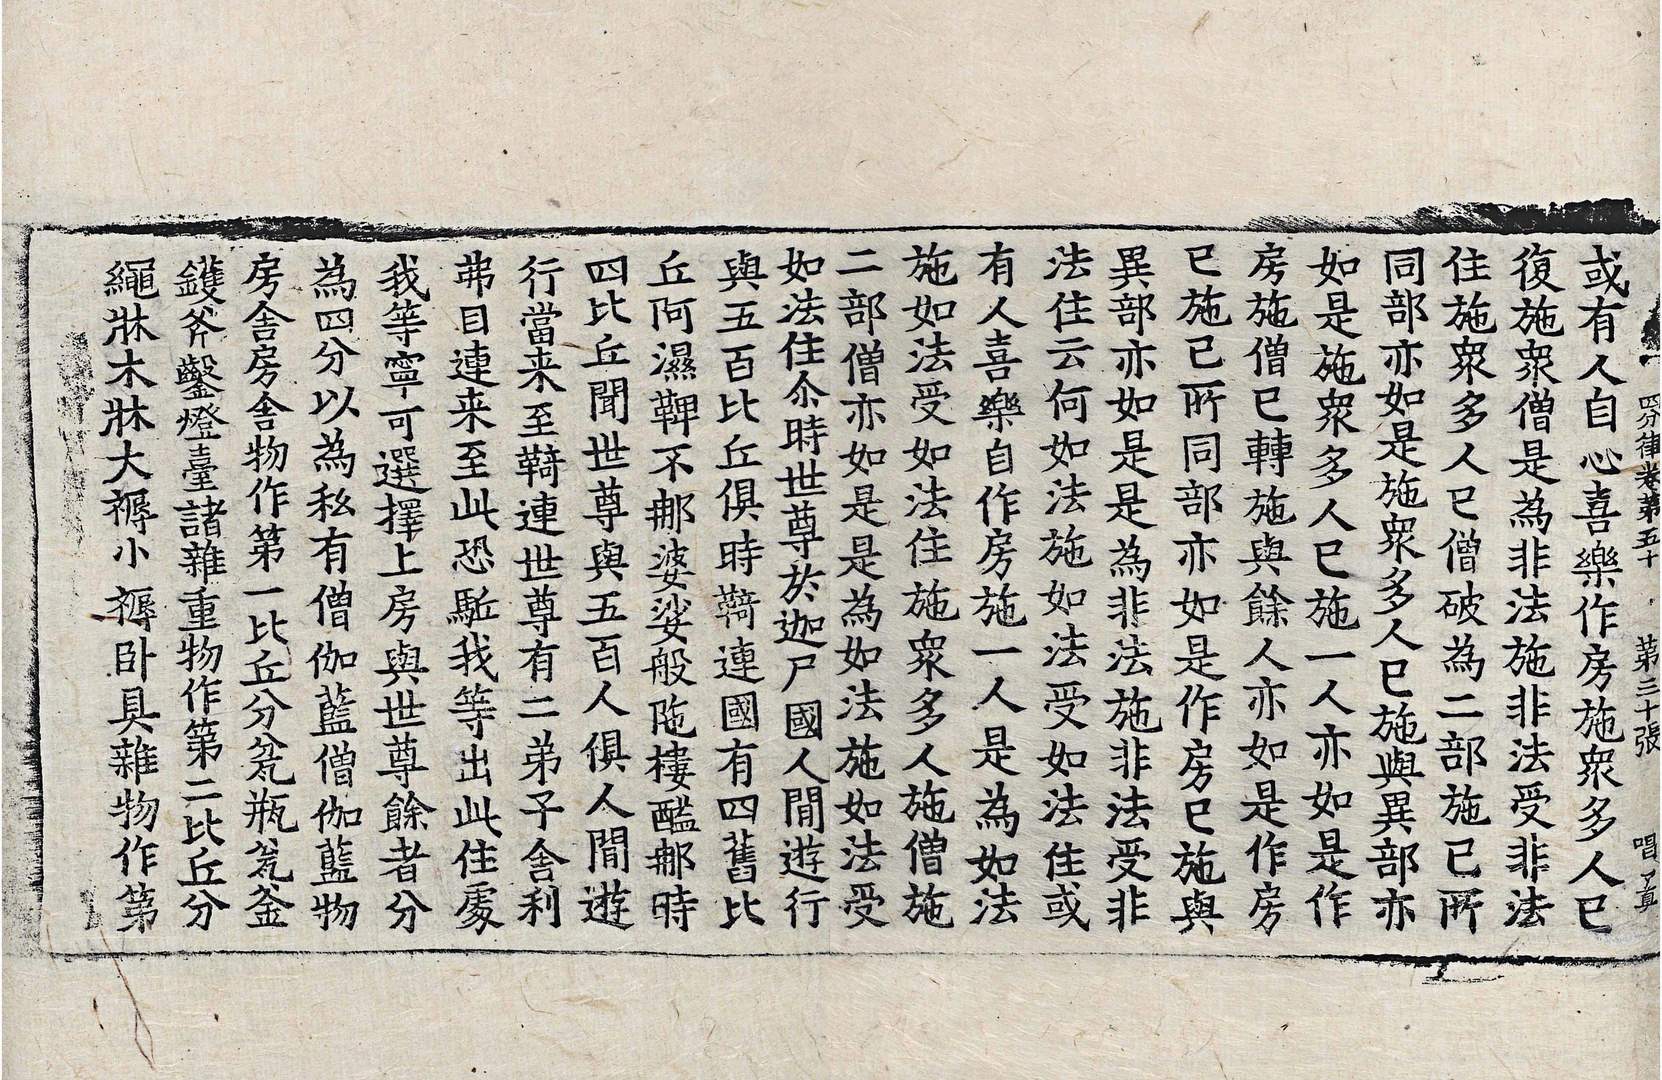 四分律卷第五十 第三十張 唱真
或有人自心喜樂作房施衆多人已
復施衆僧是為非法施非法受非法
住施衆多人已僧破為二部施已所
同部亦如是施衆多人已施與異部亦
如是施衆多人已施一人亦如是作
房施僧已轉施與餘人亦如是作房
已施已所同部亦如是作房已施與
異部亦如是是為非法施非法受非
法住云何如法施如法受如法住或
有人喜樂自作房施一人是為如法
施如法受如法住施衆多人施僧施
二部僧亦如是是為如法施如法受
如法住尒時世尊於迦尸國人閒遊行
與五百比丘俱時鞊連國有四舊比
丘阿濕鞞不那婆娑般陁樓醯那時
四比丘聞世尊與五百人俱人閒遊
行當来至鞊連世尊有二弟子舍利
弗目連来至此恐駈我等出此住處
我等寧可選擇上房與世尊餘者分
為四分以為私有僧伽藍僧伽藍物
房舍房舍物作第一比丘分瓮瓶瓮釜
鑊斧鑿燈臺諸雜重物作第二比丘分
繩牀木牀大褥小褥卧具雜物作第